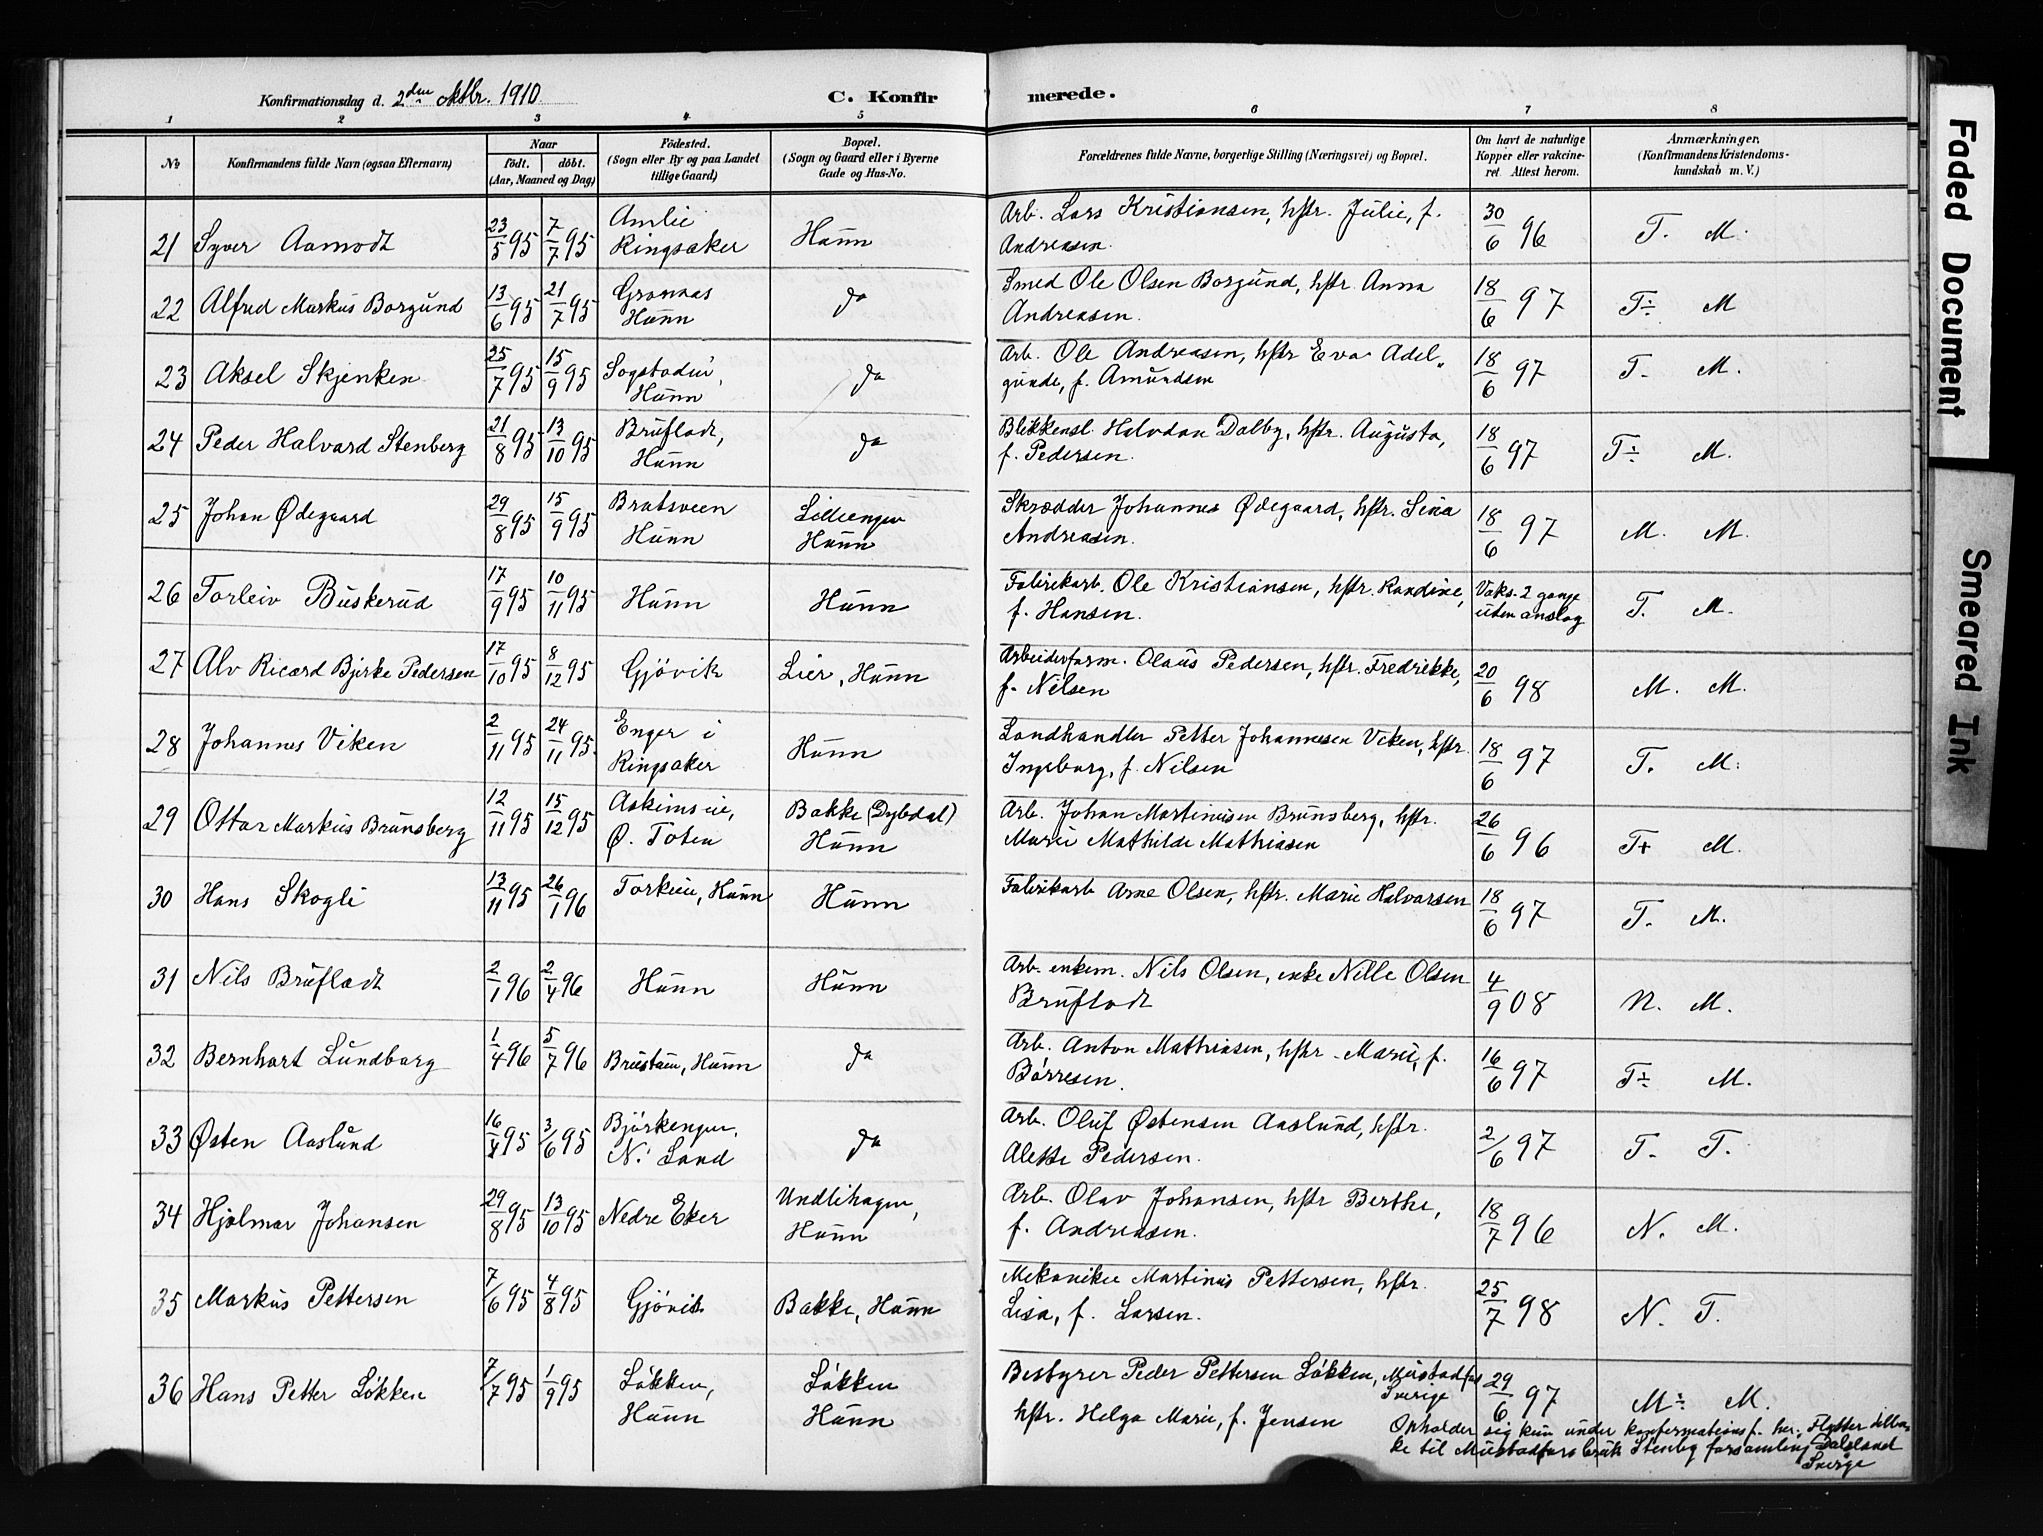 Konfirmationsdag d. 2den oktbr. 1910
C. Konfirmerede.
1 2 3 4 5 6 7 8
No
Konfirmandens fulde Navn (ogsaa Efternavn)
Naar
födt. döbt.
(Aar, Maaned og Dag)
Födested.
(Sogn eller By og paa Landet
tillige Gaard)
Bopæl.
(Sogn og Gaard eller i Byerne
Gade og Hus-No.
Forældrenes fulde Navne, borgerlige Stilling (Næringsvei) og Bopæl.
Om havt de naturlige
Kopper eller vakcine-
ret. Attest herom.
Anmærkninger.
(Konfirmandens Kristendoms-
kundskab m. V.)
21 Syver Aamodt 23/5 95 7/7 95 Amlie Ringsaker Hunn Arb. Lars Kristiansen, hstr. Julie, f.
Andreasen. 30/6 96 T. M.
22 Alfred Markus Borgund 13/6 95 21/7 95 Grannas Hunn da Smed Ole Olsen Borgund, hstr. Anna
Andreasen. 18/6 97 T÷ M
23 Aksel Skjenken 25/7 95 15/9 95 Sogstadei, Hunn da Arb. Ole Andreasen, hstr Eva Adel-
gunde, f. Amundsen 18/6 97 T. M.
24 Peder Halvard Stenberg 21/8 95 13/10 95 Brufladt, Hunn da Blikkensl. Halvdan Dalby, hstr. Augusta,
f. Pedersen. 18/6 97 T÷ M.
25 Johan Ødegaard 29/8 95 15/9 95 Bratsveen Hunn Lilleengen Hunn Skrædder Johannes Ødegaard, hstr. Sina
Andreasen. 18/6 97 M. M.
26 Torleiv Buskerud 17/9 95 10/11 95 Hunn Hunn Fabrikarb. Ole Kristiansen, hstr. Randine,
f. Hansen. Vaks. 2 gange
uten anslag T. M.
27 Alv Ricard Bjerke Pedersen 17/10 95 8/12 95 Gjövik Lier, Hunn Arbeiderform. Olaus Pedersen, hstr. Fredrikke,
f. Nilsen 20/6 98 M. M.
28 Johannes Viken 2/11 95 24/11 95 Enger i Ringsaker Hunn Landhandler Petter Johannesen Viken, hstr.
Ingeborg, f. Nilsen 18/6 97 T. M.
29 Ottar Markus Brunsberg 12/11 95 15/12 95 Askimseie, Ø. Toten Bakke (Dybdal) Hunn Arb. Johan Martinusen Brunsberg, hstr.
Marie Mathilde Mathiasen 26/6 96 T+ M.
30 Hans Skogli 13/11 95 26/1 96 Torkeie, Hunn Hunn Fabrikarb Arne Olsen, hstr. Marie Halvorsen 18/6 97 T. M.
31 Nils Brufladt 2/1 96 2/4 96 Hunn Hunn Arb. enkem. Nils Olsen, enke Nille Olsen
Brufladt 4/9 08 N. M.
32 Bernhart Lundborg 1/4 96 5/7 96 Brustuen, Hunn da Arb. Anton Mathiasen, hstr. Marie, f.
Børresen. 16/6 97 T÷ M.
33 Østen Aaslund 16/4 95 3/6 95 Björkengen, N. Land da Arb. Oluf Østensen Aaslund, hstr.
Alette Pedersen. 2/6 97 T. T.
34 Hjalmar Johansen 29/8 95 13/10 95 Nedre Eker Undlihagen, Hunn Arb. Olav Johansen, hstr Berthe,
f. Andreasen. 18/7 96 N. M.
35 Markus Pettersen 7/6 95 4/8 95 Gjövik Bakke, Hunn Mekaniker Martinus Pettersen, hstr.
Lisa, f. Larsen. 25/7 98 N. T.
36 Hans Petter Løkken 7/7 95 1/9 95 Løkken, Hunn Løkken Hunn Bestyrer Peder Pettersen Løkken, Mustadfors
Sverige
hstr. Helga Marie, f. Jensen 29/6 97 M÷ M.
Opholder sig kun under konfirmationsf. her. Flytter tilba-
ke til Mustadfors bruk Stenby forsamling Dalsland
Sverige
Faded Document
Smeared Ink